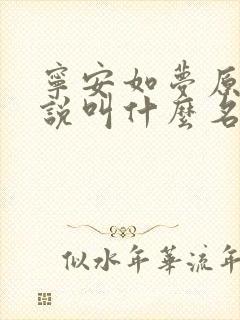 寧安如夢原
說叫什麼名
似水年華流年